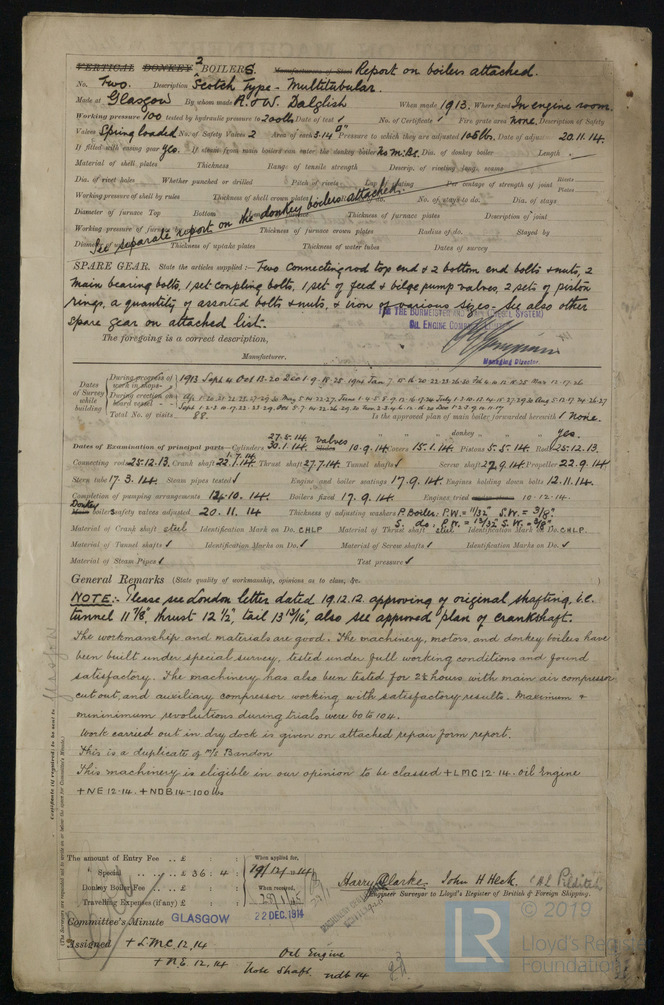 VERTICAL DONKEY 2 BOILERS. Manufacturers of Steel Report on boilers attached.
No. Two. Description Scotch Type - Multitubular.
Made at Glasgow By whom made R. & W. Dalglish When made 1913. Where fixed In engine room.
Working pressure 100 tested by hydraulic pressure to 200 lbs Date of test ✓ No. of Certificate ✓ Fire grate area none. Description of Safety
Valves Spring loaded No. of Safety Valves 2 Area of each 3.14 □" Pressure to which they are adjusted 105 lbs. Date of adjust. 20.11.14.
If fitted with easing gear yes. If steam from main boilers can enter the donkey boiler No M. Bs. Dia. of donkey boiler Length
Material of shell plates Thickness Range of tensile strength Descrip. of riveting long. seams
Dia. of rivet holes Whether punched or drilled Pitch of rivets Lap of plating Per centage of strength of joint Rivets Plates
Working pressure of shell by rules Thickness of shell crown plates No. of stays to do. Dia. of stays
Diameter of furnace Top Bottom Thickness of furnace plates Description of joint
Working pressure of furnace Thickness of furnace crown plates Radius of do. Stayed by
Thickness of uptake plates Thickness of water tubes Dates of survey
See separate report on the donkey boilers attached.
SPARE GEAR. State the articles supplied:— Two connecting rod top end & 2 bottom end bolts & nuts, 2
main bearing bolts, 1 set coupling bolts, 1 set of feed & bilge pump valves, 2 sets of piston
rings, a quantity of assorted bolts & nuts, & iron of various sizes - see also other
spare gear on attached list.
FOR THE BURMEISTER AND WAIN (DIESEL SYSTEM)
OIL ENGINE COMPANY
The foregoing is a correct description,
Managing Director.
Manufacturer.
Dates of Survey while building
During progress of work in shops
During erection on board vessel
Total No. of visits 88. Is the approved plan of main boiler forwarded herewith 1 None.
" " " donkey " " " yes.
Dates of Examination of principal parts—Cylinders 27.5.14. 30.1.14. valves 10.9.14. Covers 15.1.14. Pistons 5.5.14. Rods 25.12.13.
Connecting rods 25.12.13. Crank shaft 1.7.14. 22.1.14. Thrust shaft 27.7.14. Tunnel shafts ✓ Screw shaft 22.9.14. Propeller 22.9.14.
Stern tube 17.3.14. Steam pipes tested ✓ Engine and boiler seatings 17.9.14. Engines holding down bolts 12.11.14.
Completion of pumping arrangements 12.10.14. Boilers fixed 17.9.14. Engines tried 10.12.14.
Donkey Main boiler safety valves adjusted 20.11.14 Thickness of adjusting washers P. Boiler: P.W. = 11/32" S.W. = 3/8"
S. do: P.W. = 13/32" S.W. = 3/8"
Material of Crank shaft steel Identification Mark on Do. CHLP Material of Thrust shaft steel Identification Mark on Do. CHLP.
Material of Tunnel shafts ✓ Identification Marks on Do. ✓ Material of Screw shafts ✓ Identification Marks on Do. ✓
Material of Steam Pipes ✓ Test pressure ✓
General Remarks (State quality of workmanship, opinions as to class, &c.
NOTE:- Please see London letter dated 19.12.12. approving of original shafting, i.e.
tunnel 11 7/8", thrust 12 1/2", tail 13 13/16", also see approved plan of crankshaft.
The workmanship and materials are good. The machinery, motors, and donkey boilers have
been built under special survey, tested under full working conditions and found
satisfactory. The machinery has also been tested for 24 hours with main air compressor
cut out, and auxiliary compressor working, with satisfactory results. Maximum &
minimum revolutions during trials were 60 to 104.
Work carried out in dry dock is given on attached repair form report.
This is a duplicate of M/S Bandon
This machinery is eligible in our opinion to be classed +LMC 12.14. Oil Engine
+NE 12.14. +NDB 14 - 100 lbs
Certificate (if required) to be sent to Glasgow
(The Surveyors are requested not to write on or below the space for Committee's Minute.)
The amount of Entry Fee .. £ : : When applied for,
" Special .. £ 36 : 4 : 19/12/1914
Donkey Boiler Fee .. £ : : When received,
Travelling Expenses (if any) £ : :
Harry Clarke. John H Heck.
Engineer Surveyor to Lloyd's Register of British & Foreign Shipping.
Committee's Minute GLASGOW 22 DEC. 1914
Assigned + L.M.C. 12.14 Oil Engine
+ N.E. 12.14 Note Shaft. ndb 14
© 2019
LR
Lloyd's Register
Foundation